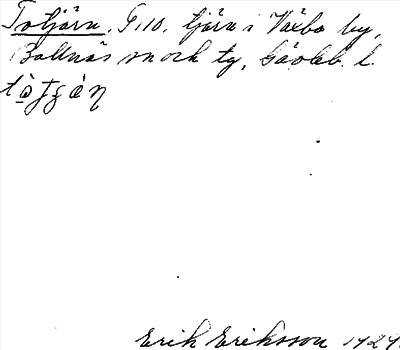 Totjärn, G.10. tjärn i Växbo by,
Bollnäs sn och tg, Gävleb. l.
Erik Eriksson 1929.